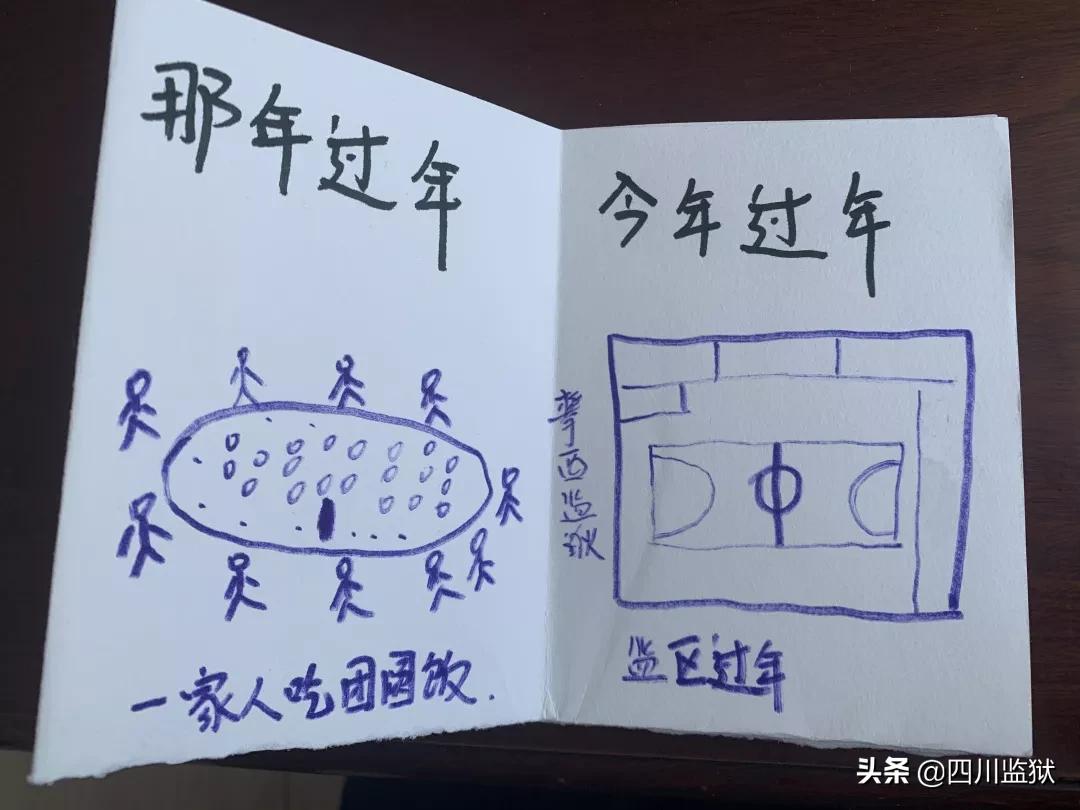 那年过年
一家人吃团圆饭.
今年过年
攀西监狱
监区过年
头条 @四川监狱